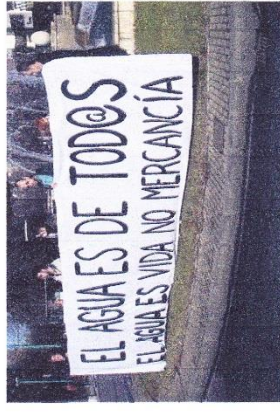 EL AGUA ES DE TOD@S
EL AGUA ES VIDA NO MERCANCÍA